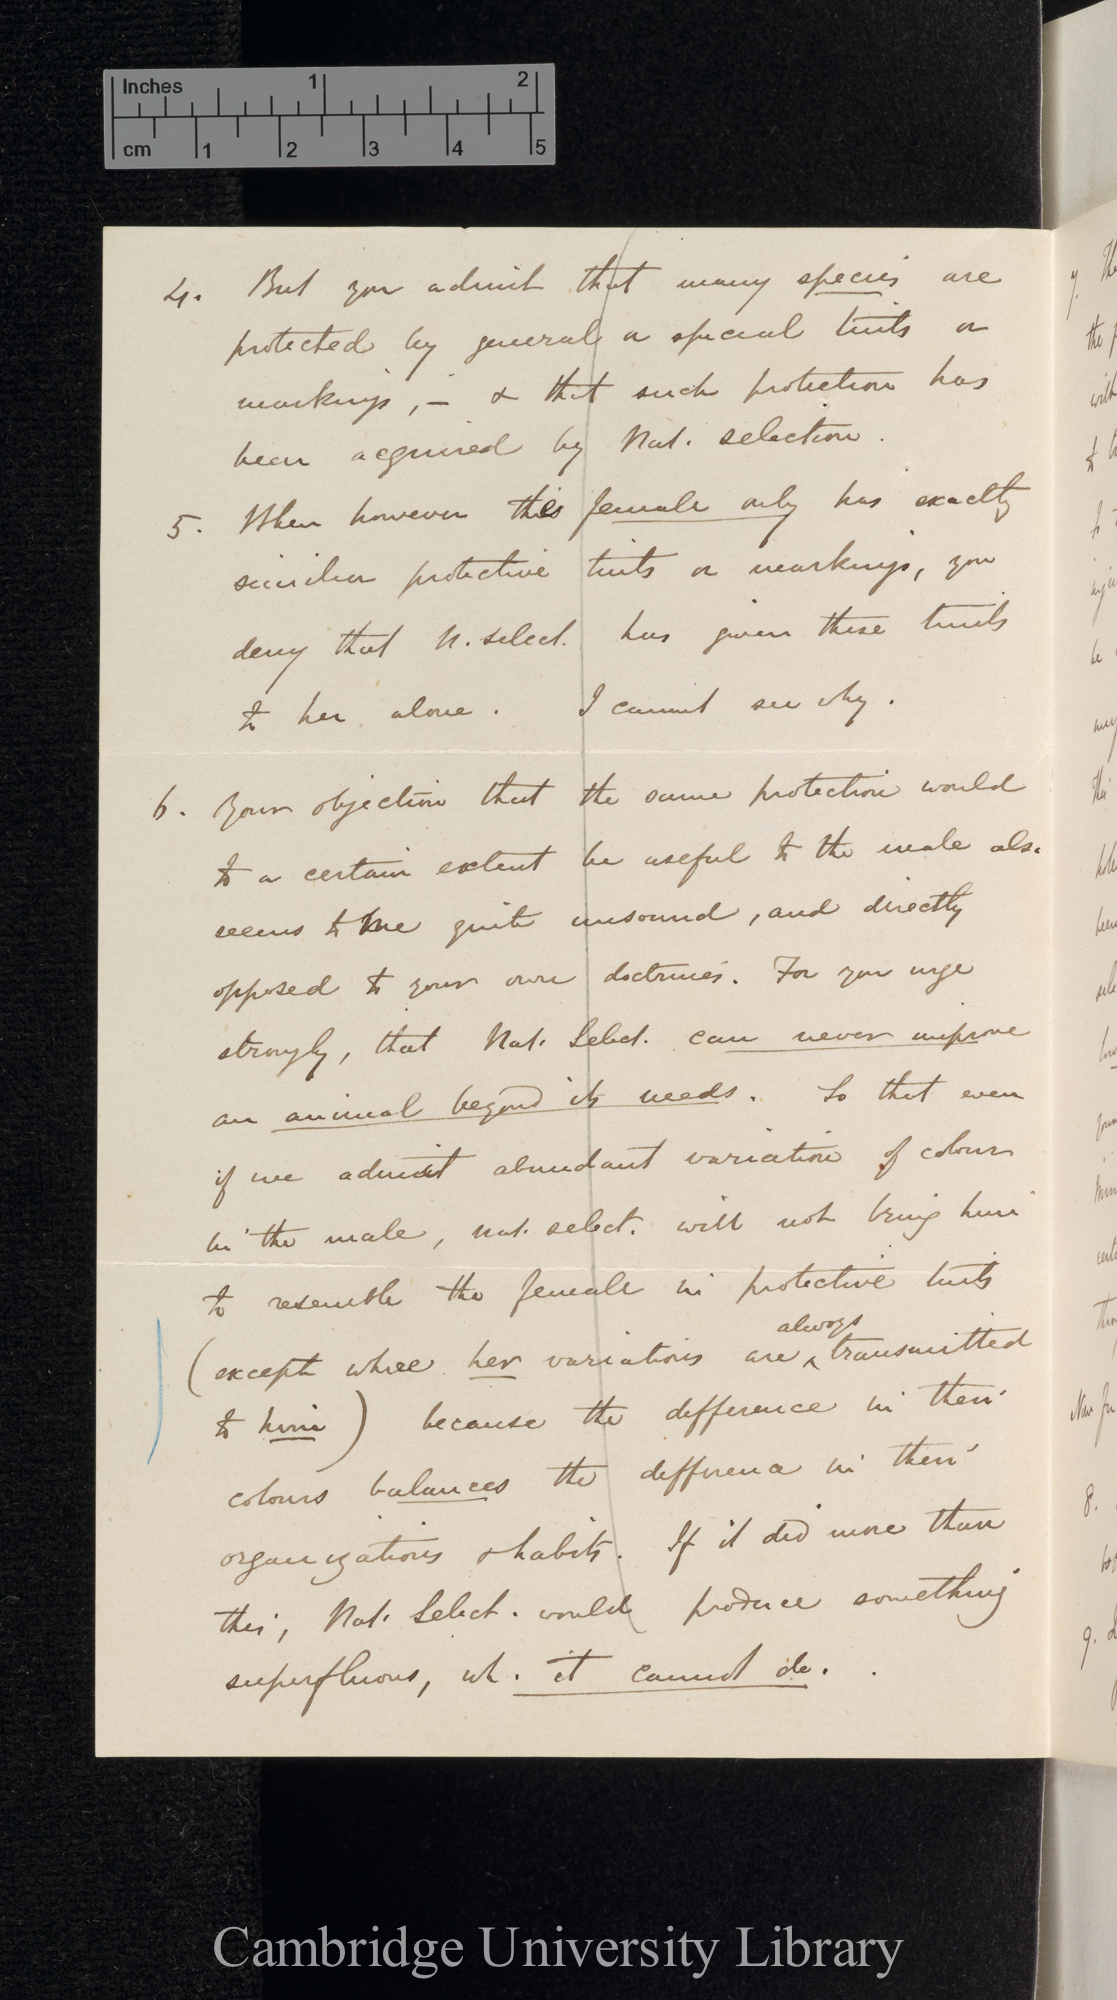 Inches 1 2
cm 1 2 3 4 5
4. But you admit that many species are
protected by general or special tints or
markings, – & that such protection has
been acquired by Nat. selection.
5. When however the female only has exactly
similar protective tints or markings, you
deny that N. select. has given these tints
to her alone. I cannot see why.
6. Your objection that the same protection would
to a certain extent be useful to the male also
seems to me quite unsound, and directly
opposed to your own doctrines. For you urge
strongly, that Nat. Select. can never improve
an animal beyond its needs. So that even
if we admit abundant variation of colour
in the male, nat. select. will not bring him
to resemble the female in protective tints
always
(except where her variations are ‸ transmitted
to him) because the difference in their
colours balances the difference in their
organizations & habits. If it did more than
this, Nat. Select. would produce something
superfluous, wh. it cannot do.
7.
8.
9.
Cambridge University Library